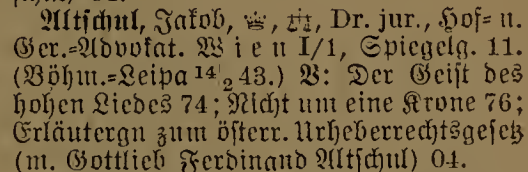 Altschul, Jakob, Dr. jur., Hof- u.
Ger.-Advokat. Wien I/1, Spiegelg. 11.
(Böhm.-Leipa 14/2 43.) V: Der Geist des
hohen Liedes 74; Nicht um eine Krone 76;
Erläutergn zum österr. Urheberrechtsgesetz
(m. Gottlieb Ferdinand Altschul) 04.